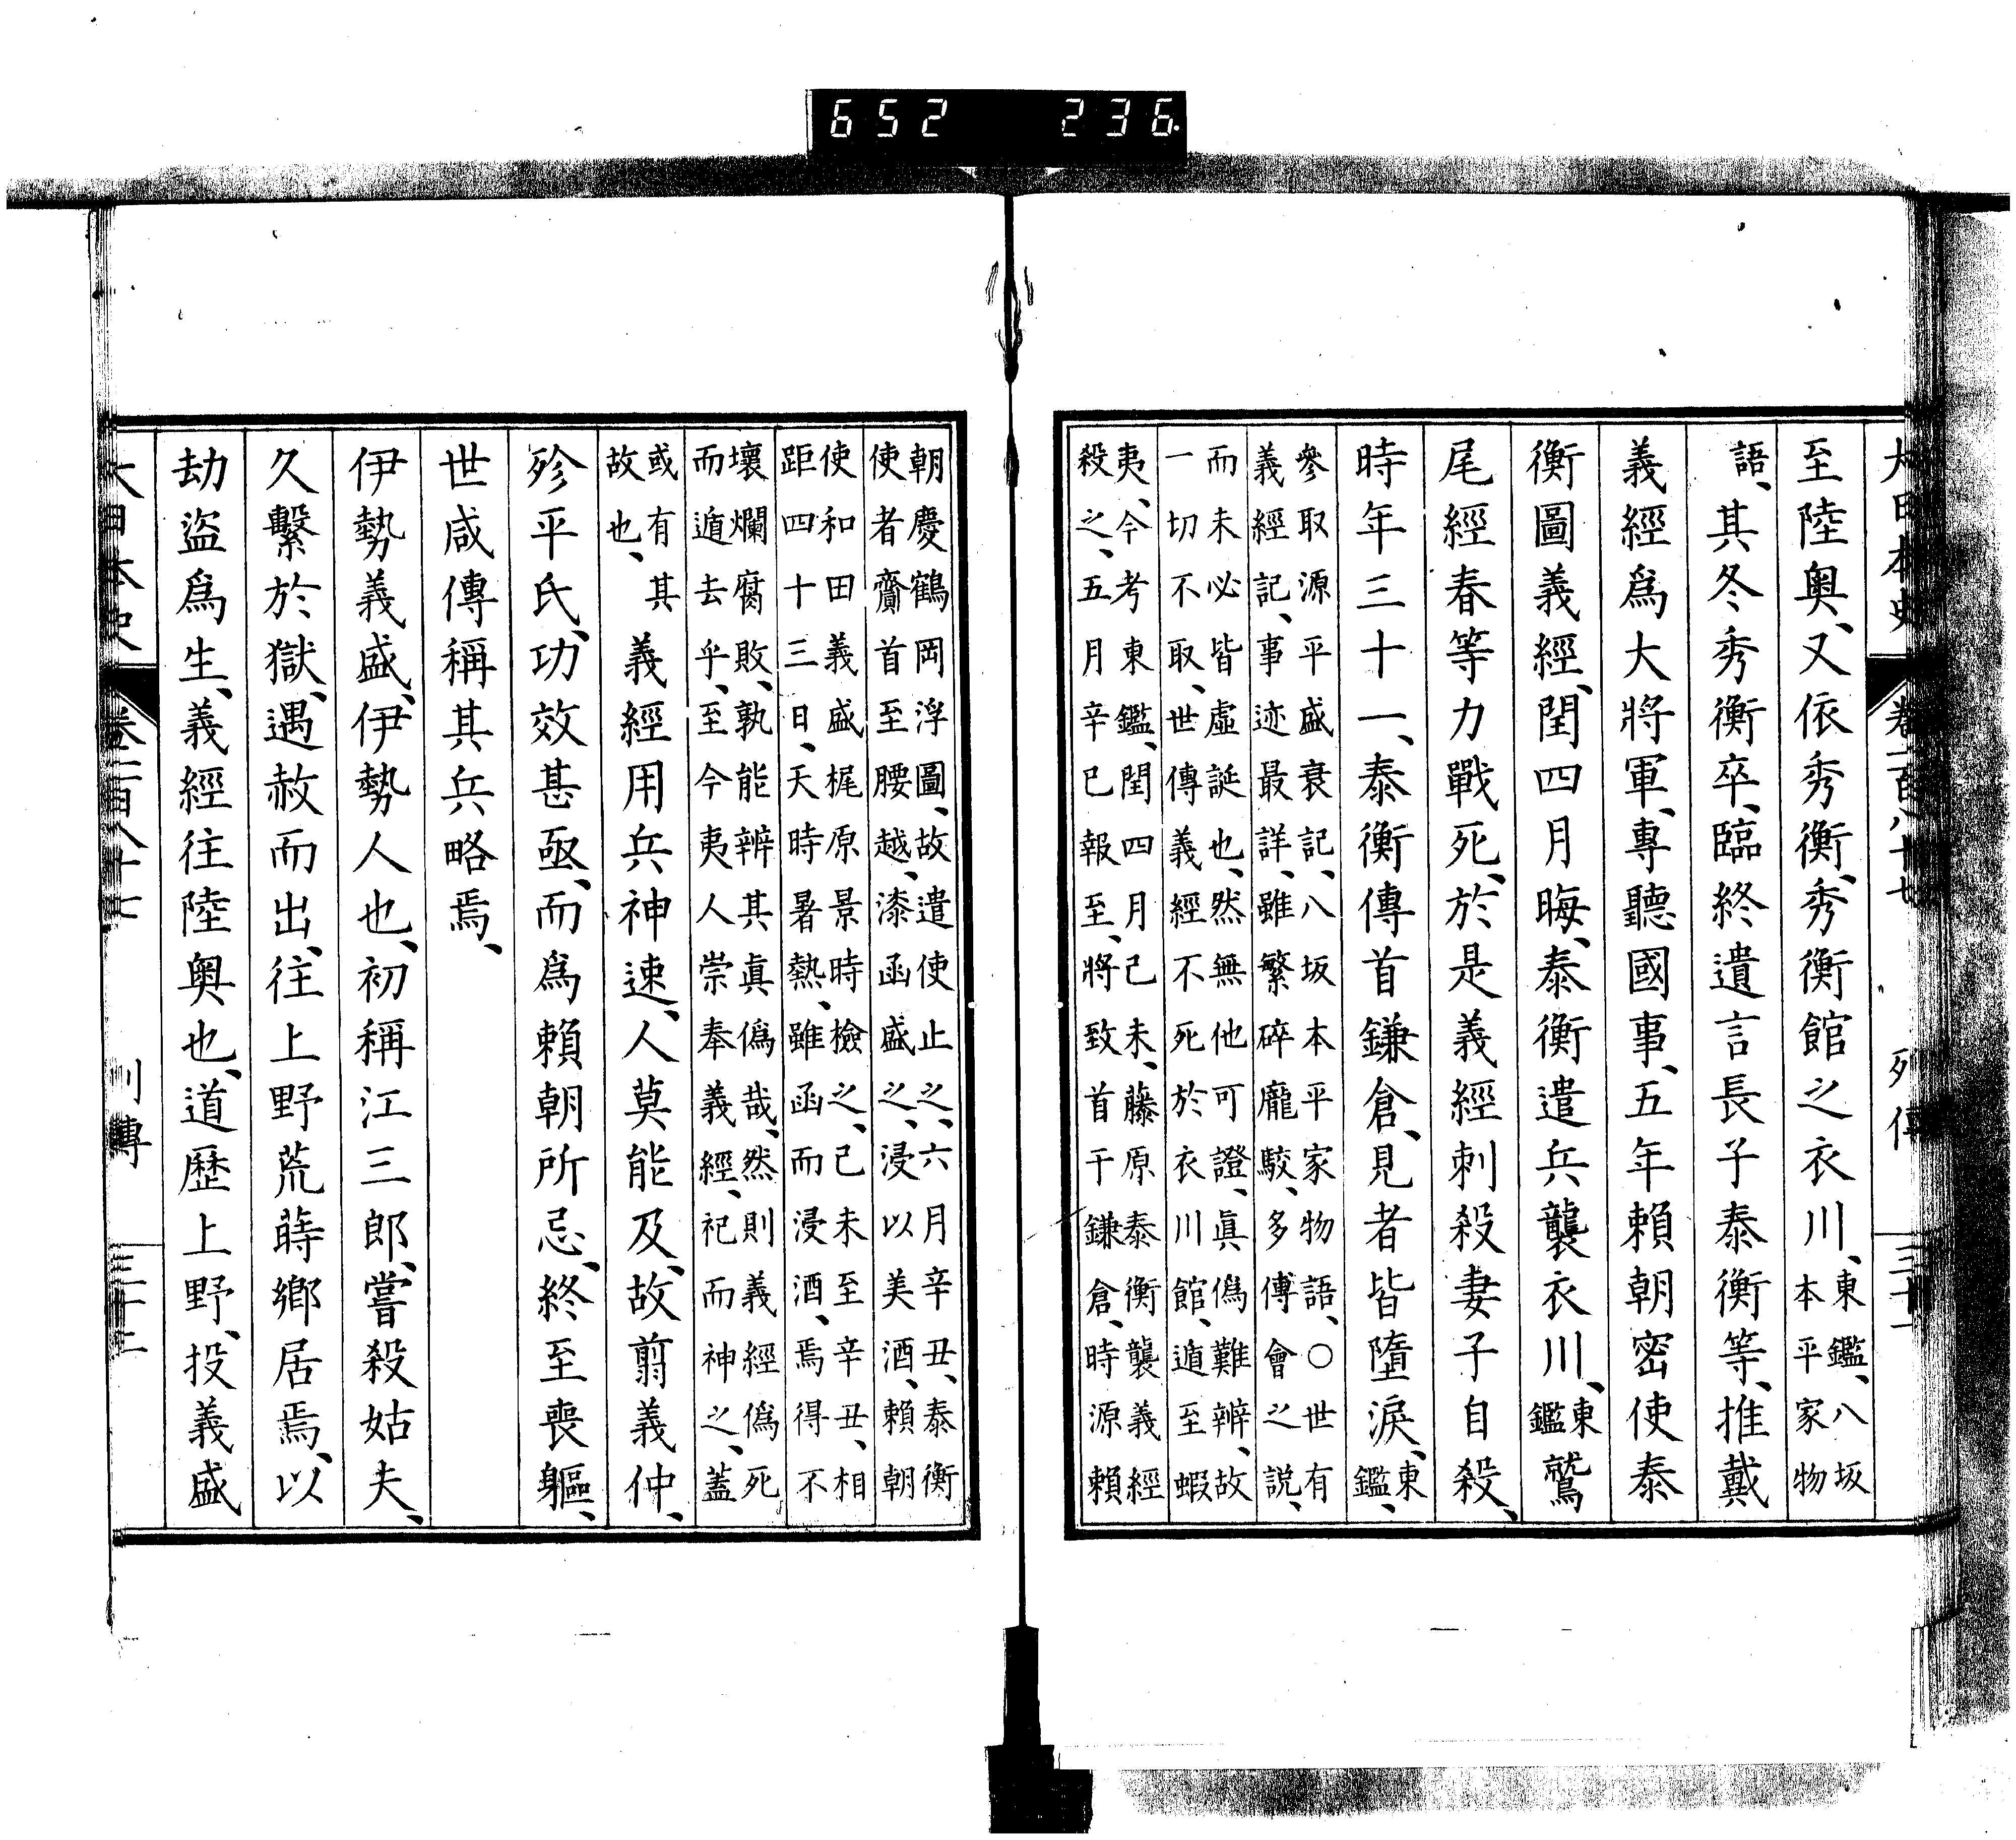 652 236.
大日本史 卷一百八十七 列傳 三十一
至陸奧、又依秀衡、秀衡館之衣川、東鑑、八坂本平家物
語、其冬秀衡卒、臨終遺言長子泰衡等、推戴
義經爲大將軍、專聽國事、五年賴朝密使泰
衡圖義經、閏四月晦、泰衡遣兵襲衣川、東鑑鷲
尾經春等力戰死、於是義經刺殺妻子自殺、
時年三十一、泰衡傳首鎌倉、見者皆墮淚、東鑑、
參取源平盛衰記、八坂本平家物語、○世有
義經記、事迹最詳、雖繁碎龐駁、多傅會之說、
而未必皆虛誕也、然無他可證、眞僞難辨、故
一切不取、世傳義經不死於衣川館、遁至蝦
夷、今考東鑑、閏四月己未、藤原泰衡襲義經
殺之、五月辛巳報至、將致首于鎌倉、時源賴
朝慶鶴岡浮圖、故遣使止之、六月辛丑、泰衡
使者齎首至腰越、漆函盛之、浸以美酒、賴朝
使和田義盛梶原景時檢之、己未至辛丑、相
距四十三日、天時暑熱、雖函而浸酒、焉得不
壞爛腐敗、孰能辨其眞僞哉、然則義經僞死
而遁去乎、至今夷人崇奉義經、祀而神之、蓋
或有其
故也、
義經用兵神速、人莫能及、故翦義仲、
殄平氏、功效甚亟、而爲賴朝所忌、終至喪軀、
世咸傳稱其兵略焉、
伊勢義盛、伊勢人也、初稱江三郎、嘗殺姑夫、
久繫於獄、遇赦而出、往上野荒蒔鄉居焉、以
劫盜爲生、義經往陸奧也、道歷上野、投義盛
大日本史 卷一百八十七 列傳 三十二